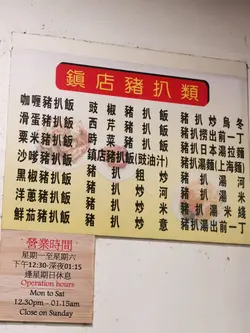 鎮店豬扒類
咖喱豬扒飯
滑蛋豬扒飯
粟米豬扒飯
沙嗲豬扒飯
黑椒豬扒飯
洋蔥豬扒飯
鮮茄豬扒飯
豉椒豬扒飯
西芹豬扒飯
時菜豬扒飯
鎮店豬扒飯(豉油汁)
豬扒炒河
豬扒炒米
豬扒炒意
豬扒炒烏冬
豬扒撈出前一丁
豬扒日本湯拉麵
豬扒湯麵(上海麵)
豬扒湯河
豬扒湯
豬扒湯出前一丁
營業時間
星期一至星期六
下午12:30-深夜01:15
逢星期日休息
Operation hours
Mon to Sat
12.30pm - 01.15am
Close on Sunday